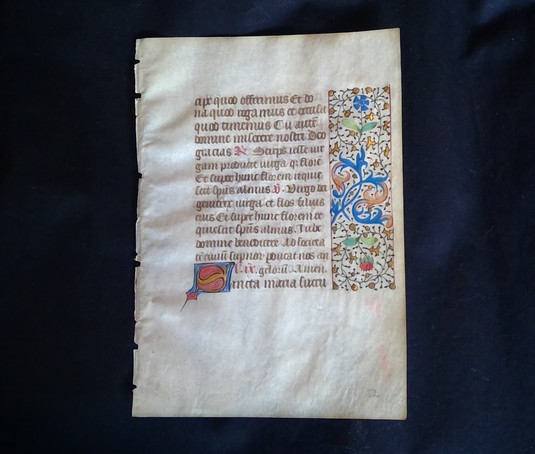 cipe quod offerimus Et do
na quod rogamus et excusa
quod timemus Tu aute
domine miserere nostri Deo
gracias R. Stirps iesse uir
gam produxit uirga q flore
Et super hunc florem requie
scit spus almus V. Virgo dei
genitrix uirga est flos filius
eius Et super hunc florem re
quiescit spus almus. Iube
domine benedicere Ad societa
te ciuiu supnor pducat nos
angeloru. Amen.
Sancta maria succu